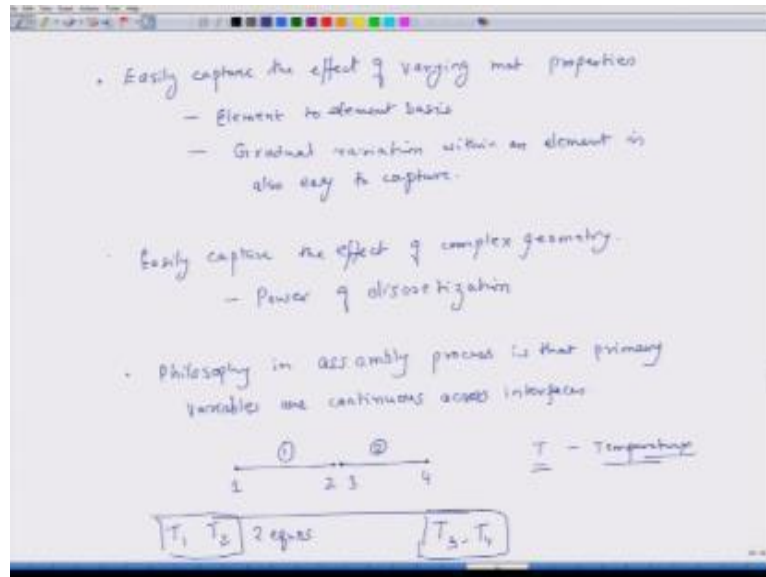 • Easily capture the effect of varying mat properties
— Element to element basis
— Gradual variation within an element is
also easy to capture.
Easily capture the effect of complex geometry.
— Power of discretization
• Philosophy in assambly process is that primary
variables are continuous across interfaces
① ②
T — Temperature
1 2 3 4
T₁ T₂ 2 eqns T₃ - T₄